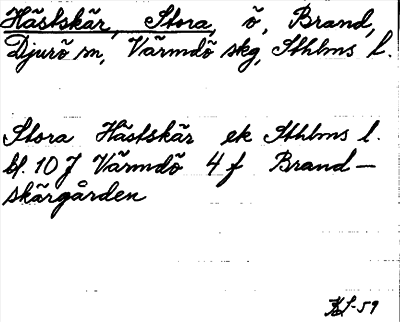 Hästskär, Stora, ö, Brand,
Djurö sn, Värmdö skg, Sthlms l.
Stora Hästskär ek Sthlms l.
bl. 10 J Värmdö 4 f Brand-
skärgården
KL-59